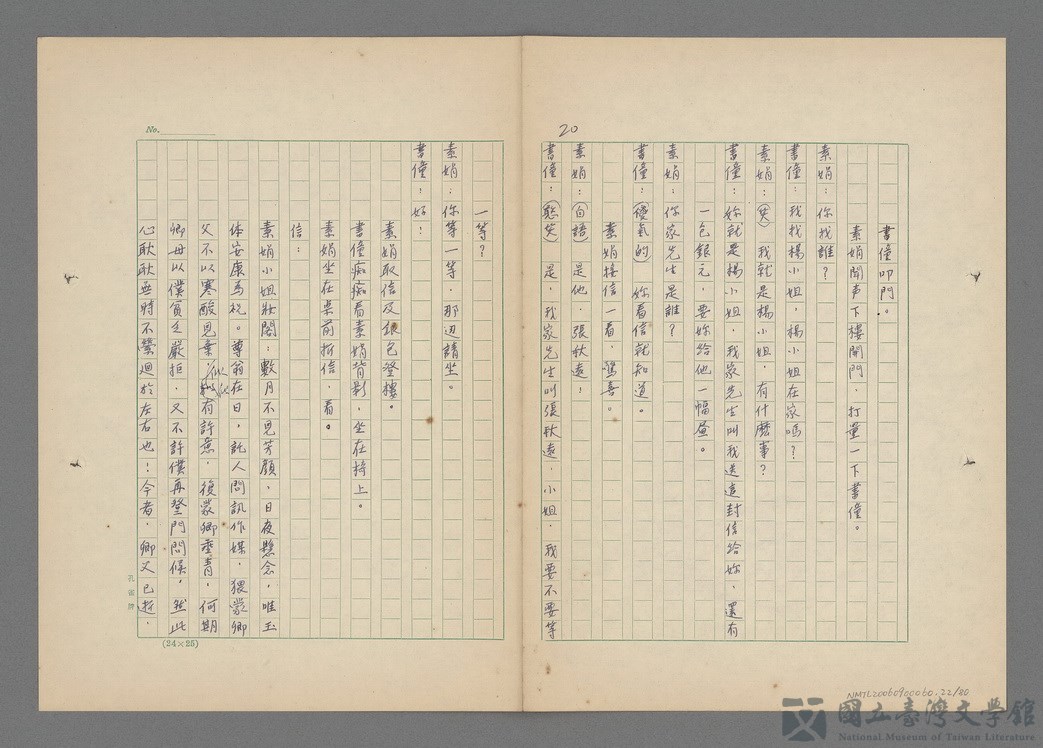 20
書僮叩門。
素娟聞声下樓開門,打量一下書僮。
素娟:你找誰?
書僮:我找楊小姐,楊小姐在家嗎?
素娟:(笑)我就是楊小姐,有什麼事?
書僮:妳就是楊小姐,我家先生叫我送這封信給妳,還有
一包銀元,要妳給他一幅画。
素娟:你家先生是誰?
書僮:(傻氣的)你看信就知道。
素娟接信一看,驚喜。
素娟:(自語)是他,張秋遠!
書僮:(憨笑)是,我家先生叫張秋遠,小姐,我要不要等
No.
一等?
素娟:你等一等,那边請坐。
書僮:好!
素娟取信及銀包登樓。
書僮痴痴看素娟背影,坐在椅上。
素娟坐在桌前拆信,看。
信:
素娟小姐妝閣:數月不見芳顏,日夜懸念,唯玉
体安康為祝。尊翁在日,託人問訊作媒,猥蒙卿
父不以寒酸見棄,似有許意,後蒙卿垂青,何期
卿母以僕貧乏嚴拒,又不許僕再登門問候,然此
心耿耿無時不縈迴於左右也!今者,卿父已逝,
孔雀牌
(24×25)
NMTL20060900060.22/80
國立臺灣文學館
National Museum of Taiwan Literature